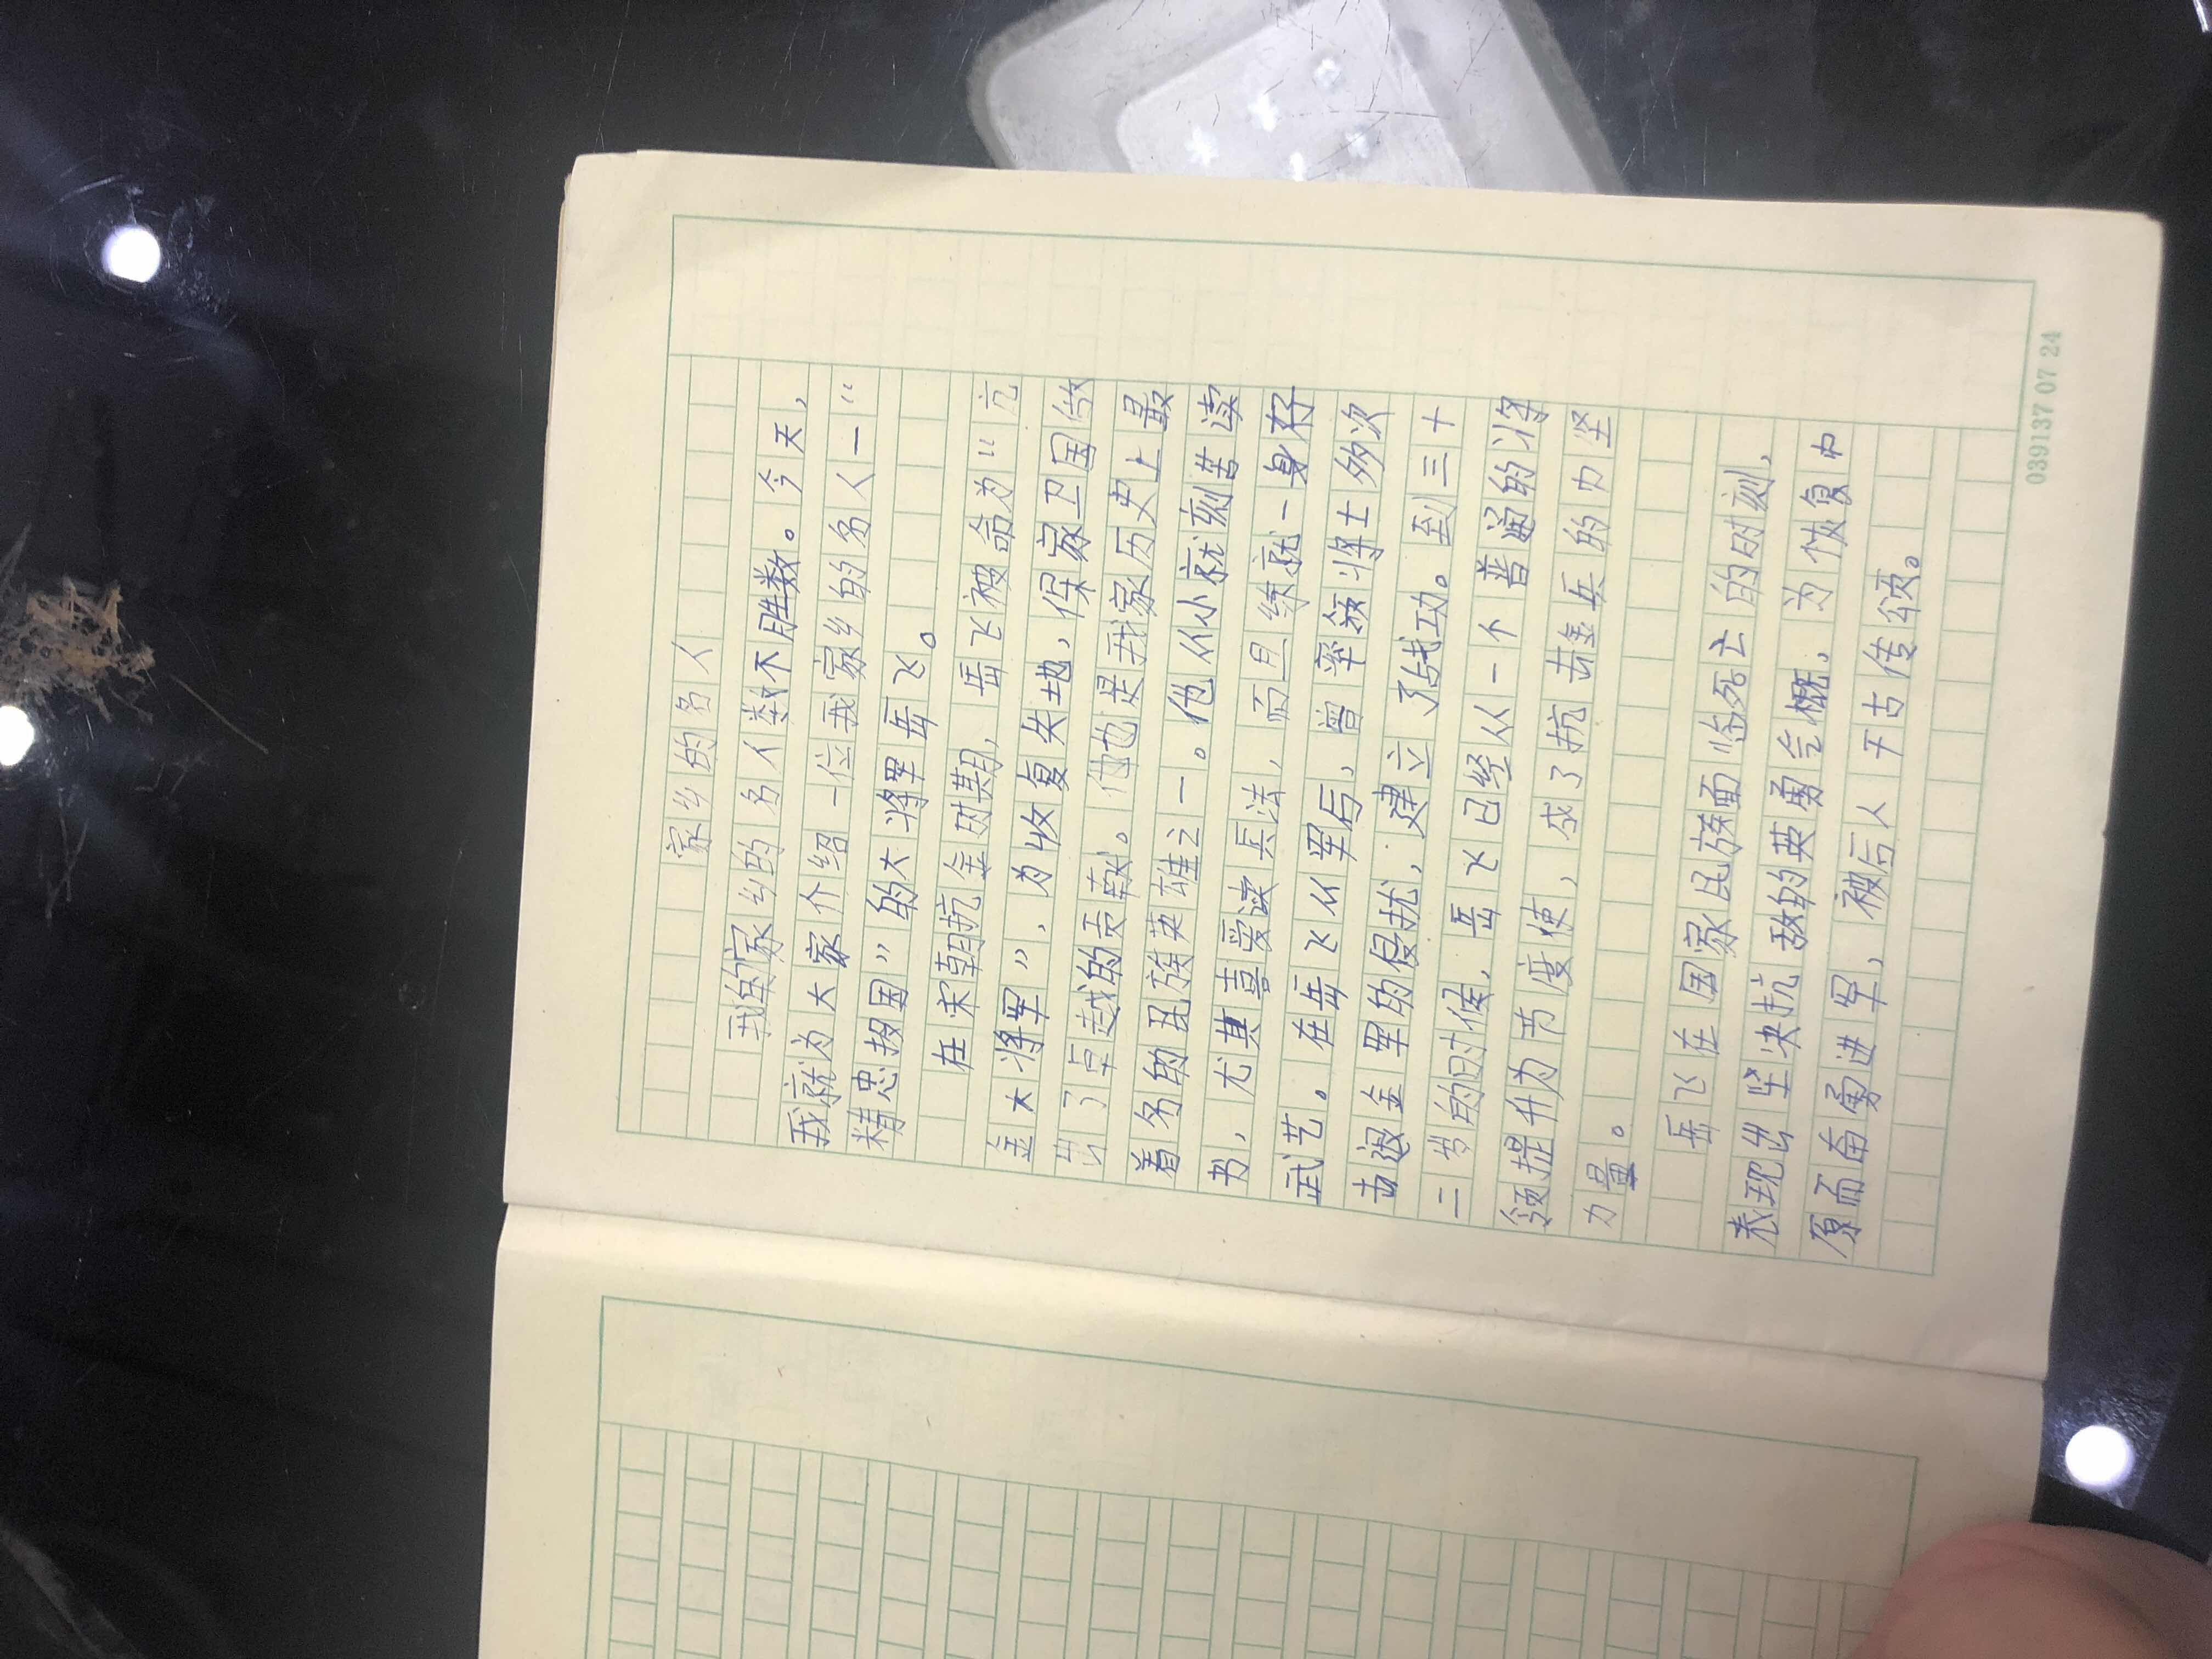 家乡的名人
我的家乡的名人数不胜数。今天，
我就为大家介绍一位我家乡的名人一“
精忠报国”的大将军岳飞。
在宋朝抗金时期，岳飞被命为“亢
金大将军”，为收复失地，保家卫国做
出了卓越的贡献。他也是我家历史上最
着名的民族英雄之一。他从小就刻苦读
书，尤其喜爱读兵法，而且练就一身好
武艺。在岳飞从军后，曾率领将士多次
击退金军的侵扰，建立了战功。到三十
二岁的时候，岳飞已经从一个普通的将
领提升为节度使，成了抗击金兵的力坚
力量。
岳飞在国家民族面临死亡的时刻，
表现出坚决抗敌的英勇气概，为恢复中
原而奋勇进军，被后人千古传颂。
039137 07 24